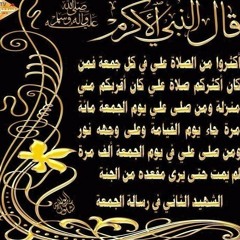 قال النبي الأكرم
صلى الله عليه وآله وسلم
أكثروا من الصلاة علي في كل جمعة فمن
كان أكثركم صلاة علي كان أقربكم مني
منزلة ومن صلى علي في يوم الجمعة مائة
مرة جاء يوم القيامة وعلى وجهه نور
ومن صلى علي في يوم الجمعة ألف مرة
لم يمت حتى يرى مقعده من الجنة
الشهيد الثاني في رسالة الجمعة